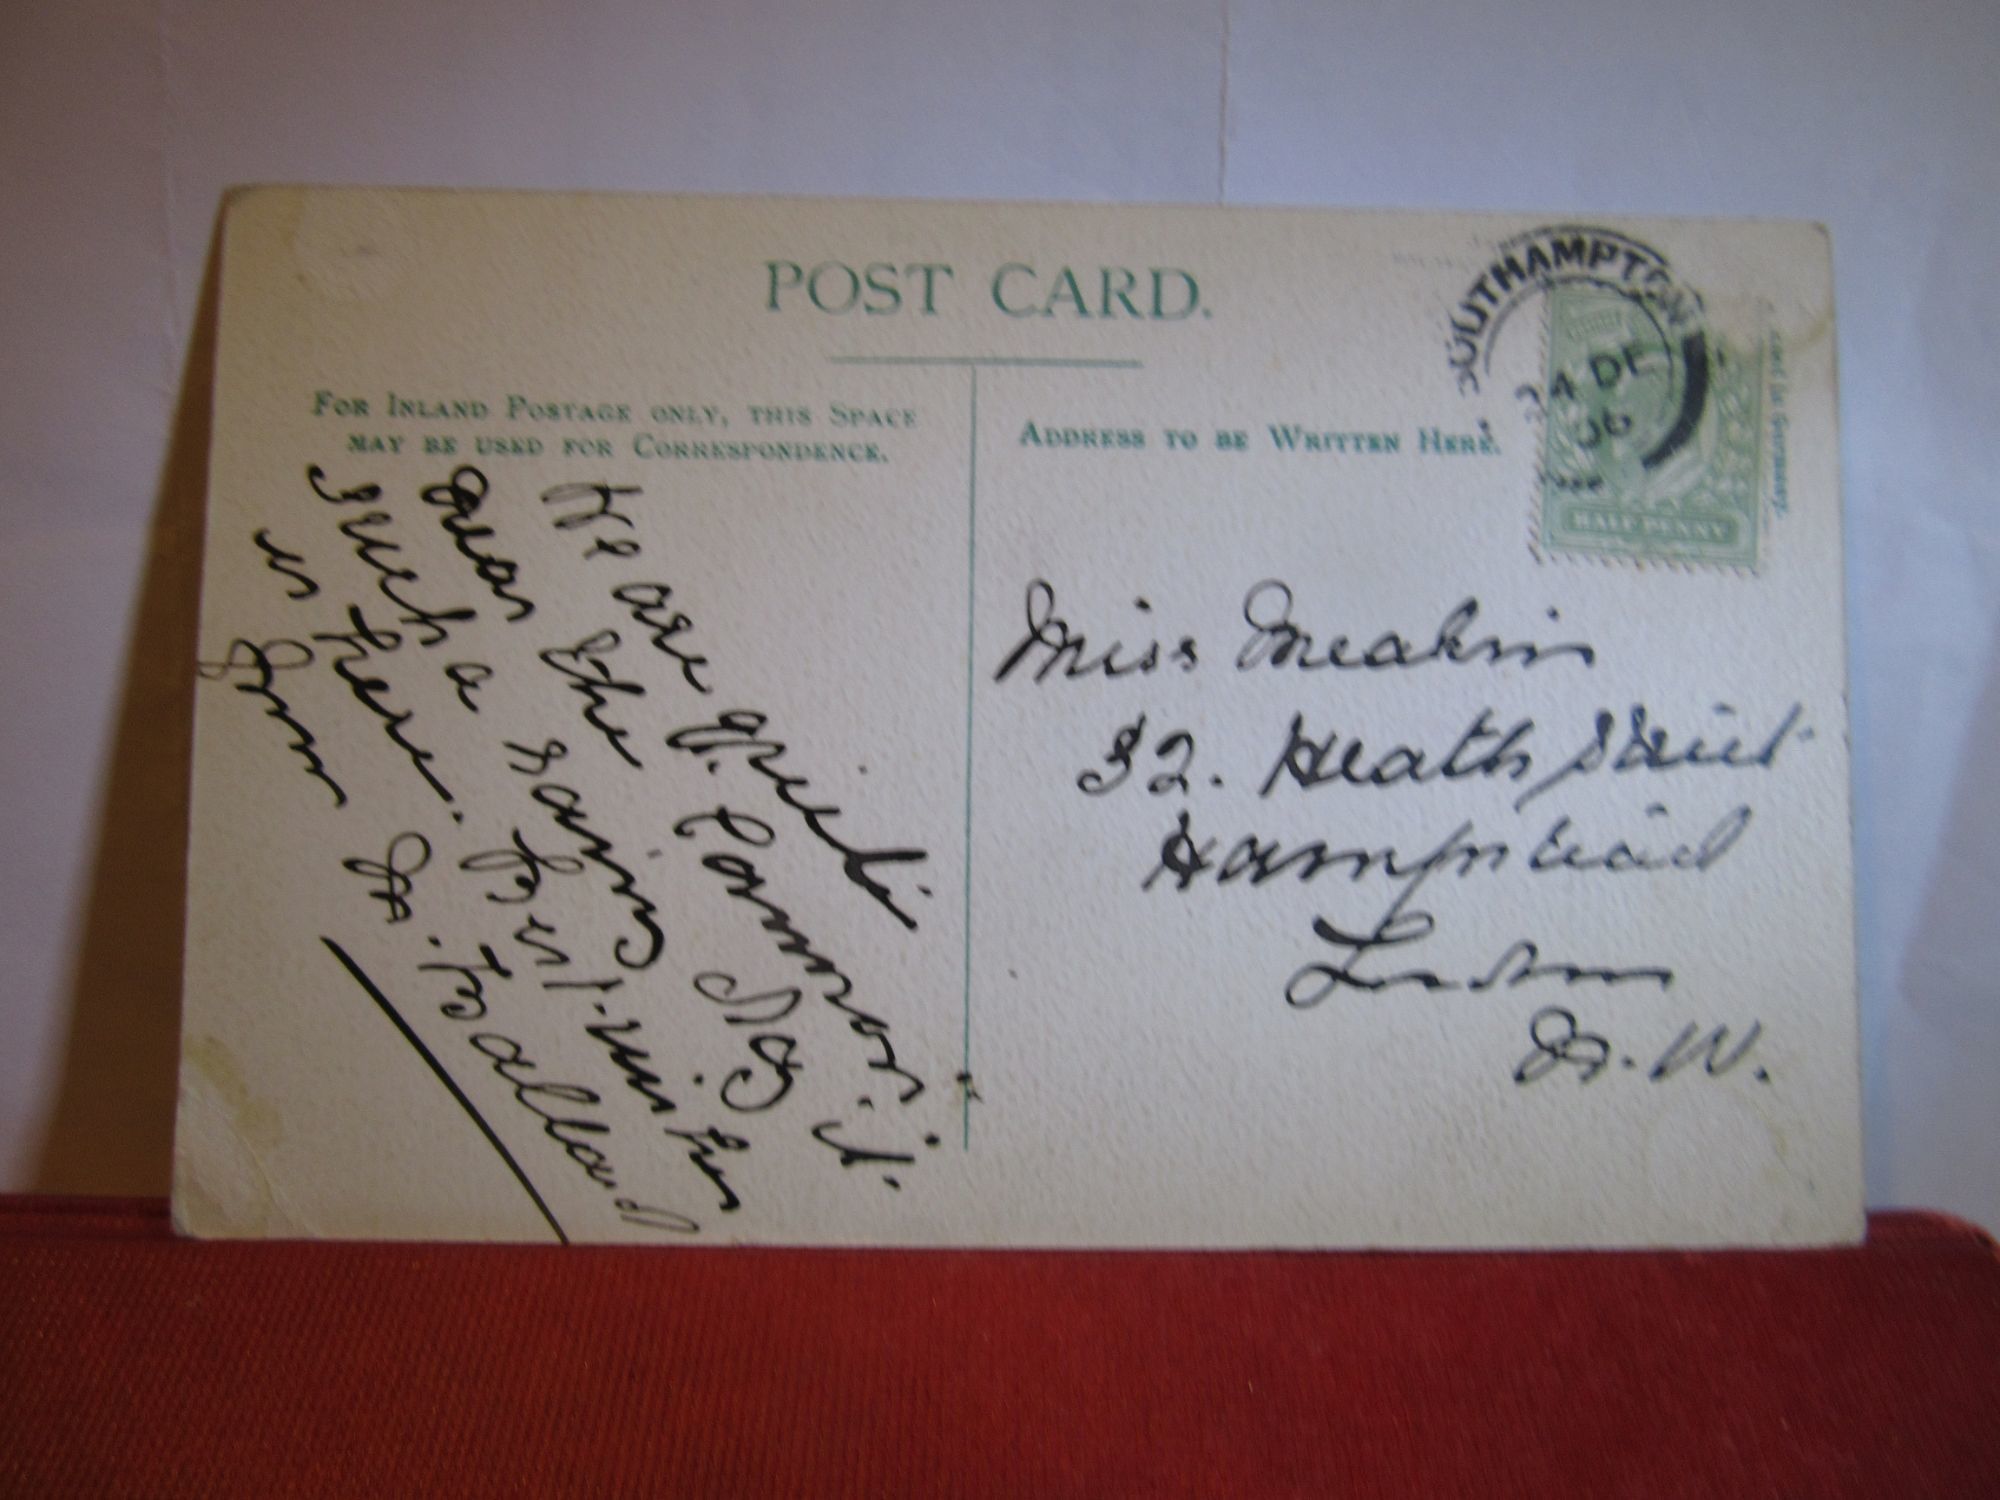 POST CARD.
FOR INLAND POSTAGE ONLY, THIS SPACE
MAY BE USED FOR CORRESPONDENCE.
ADDRESS TO BE WRITTEN HERE.
SOUTHAMPTON
DE
06
HALF PENNY
in Germany.
We are quite
near the Common. it
such a rainy day
is here. Best wishes
from M. Ballard
Miss Meakin
32. Heath Street
Hampstead
London
N. W.